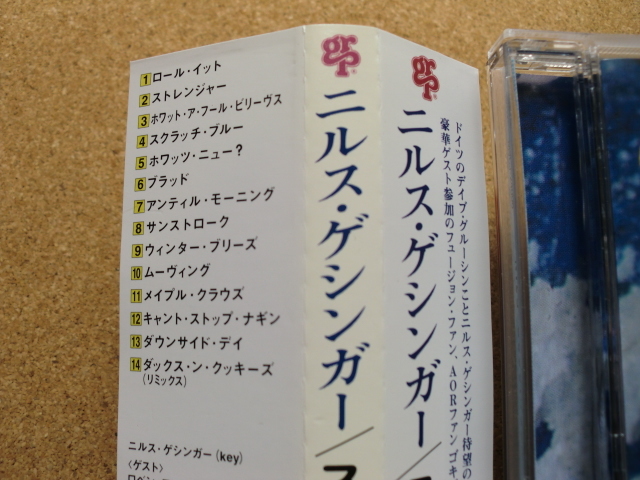 1 ロール・イット
2 ストレンジャー
3 ホワット・ア・フール・ビリーヴス
4 スクラッチ・ブルー
5 ホワッツ・ニュー?
6 ブラッド
7 アンティル・モーニング
8 サンストローク
9 ウィンター・ブリーズ
10 ムーヴィング
11 メイプル・クラウズ
12 キャント・ストップ・ナギン
13 ダウンサイド・デイ
14 ダックス・ン・クッキーズ
(リミックス)
ニルス・ゲシンガー(key)
〈ゲスト〉
grp
ニルス・ゲシンガー/
grp
ニルス・ゲシンガー/
ドイツのデイブ・グルーシンことニルス・ゲシンガー待望の
豪華ゲスト参加のフュージョン・ファン、AORファンゴキ